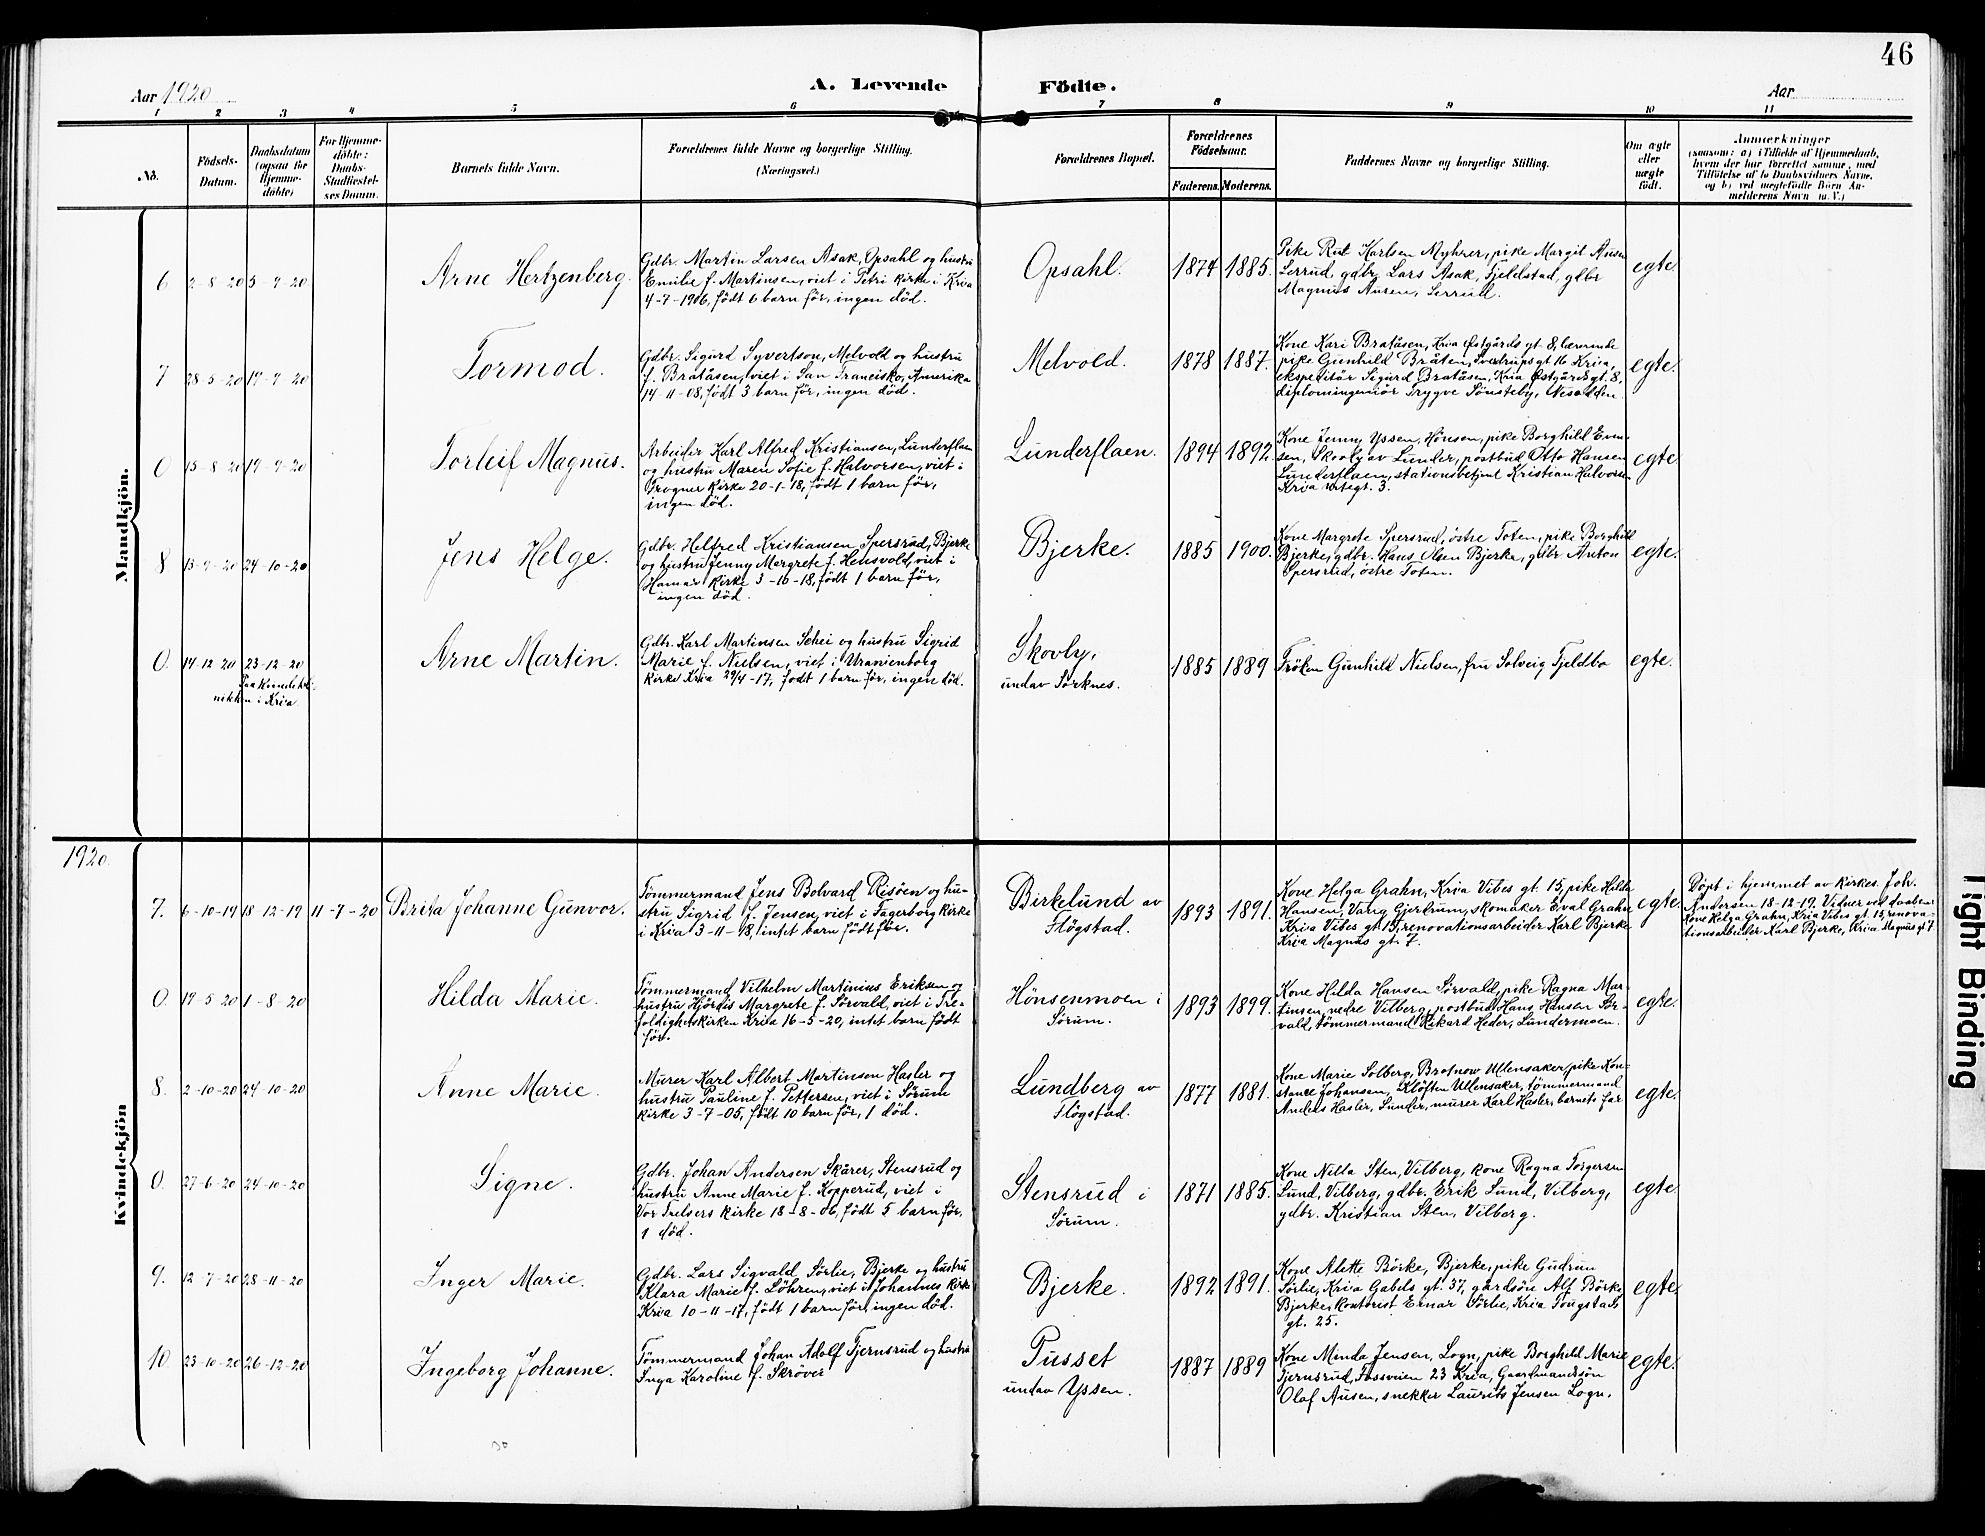 46
Aar 1920
A. Levende Födte.
Aar
1 2 3 4 5 6 7 8 9 10 11
No.
Födsels-Datum.
Daabsdatum (ogsaa for Hjemme-döbte)
For Hjemme-döbte: Daabs-Stadfæstel-ses Datum.
Barnets fulde Navn.
Forældrenes fulde Navne og borgerlige Stilling.
(Næringsvei.)
Forældrenes Bopæl.
Forældrenes Födselsaar.
Faderens. Moderens.
Faddernes Navne og borgerlige Stilling.
Om ægte eller uægte födt.
Anmærkninger
(saasom: a) i Tilfælde af Hjemmedaab,
hvem der har forrettet samme, med
Tilföielse af to Daabsvidners Navne,
og b) ved uægtefödte Börn An-
melderens Navn m.V.)
Mandkjön.
6 2-8-20 5-9-20
Arne Hertzenberg.
Gdbr. Martin Larsen Asak, Opsahl og hustru
Emilie f. Martinsen, viet i Petri kirke i Kria
4-7-1906, född 6 barn för, ingen död.
Opsahl.
1874 1885.
Pike Rut Karlsen Myhrer, pike Margit Ausen
Serrud, gdbr. Lars Asak, Fjeldstad, gdbr
Magnus Ausen, Serrud.
egte.
7 28-5-20 19-9-20
Tormod.
Gdbr. Sigurd Syvertson, Melvold og hustru
f. Bratåsen, viet i San Francisko, Amerika
14-11-08, född 3 barn för, ingen död.
Melvold.
1878 1887.
Kone Kari Bratåsen, Kria Østgårds gt 8, lærerinde
pike Gunhild Bråten, Sverdrups gt 16 Kria,
ekspeditör Sigurd Bratåsen, Kria Østgårds gt. 8,
diplomingeniör Trygve Sönsteby, Nesodden.
egte.
0 15-8-20 19-9-20
Torleif Magnus.
Arbeider Karl Alfred Kristiansen, Lunderflaen
og hustru Maren Sofie f. Halvorsen, viet i
Frogner kirke 20-1-18, född 1 barn för,
ingen död.
Lunderflaen.
1894 1892.
Kone Jenny Yssen, Hönsen, pike Borghild Even-
sen, Skovly av Lunder, postbud Otto Hansen
Lunderflaen, stationsbetjent Kristian Halvorsen
Kria gt. 3.
egte.
8 13-9-20 24-10-20
Jens Helge.
Gdbr. Helfred Kristiansen Spersrud, Bjerke
og hustru Jenny Margrete f. Hensvold, viet i
Hamar kirke 3-10-18, född 1 barn för,
ingen död.
Bjerke.
1885 1900.
Kone Margrete Spersrud, östre Toten, pike Borghild
Bjerke, gdbr. Hans Olsen Bjerke, gdbr Anton
Spersrud, östre Toten.
egte.
0. 14-12-20 23-12-20
Paa Kvindekli-
nikken i Kria
Arne Martin.
Gdbr. Karl Martinsen Schei og hustru Sigrid
Marie f. Nielsen, viet i Uranienborg
kirke Kria 29/4-17, född 1 barn för, ingen död.
Skovly,
undav Sörknes.
1885 1889
Fröken Gunhild Nielsen, fru Solveig Fjeldbo
egte.
1920.
Kvindekjön
7. 6-10-19 18-12-19 11-7-20
Brita Johanne Gunvor.
Tömmermand Jens Bolvard Risöen og hu-
stru Sigrid f. Jensen, viet i Fagerborg kirke
i Kria 3-11-18, intet barn född för.
Birkelund av
Flögstad.
1893 1891.
Kone Helga Grahn, Kria Vibes gt. 15, pike Hilda
Hansen, Varig Gjerdrum, skomaker Eval Grahn
Kria Vibes gt. 15, renovationsarbeider Karl Bjerke
Kria Magnus gt. 7.
egte.
Döpt i hjemmet av kirkes. Joh.
Andersen 18-12-19. Vidner ved daaben:
Kone Helga Grahn, Kria Vibes gt. 15, renova-
tionsarbeider Karl Bjerke, Kria Magnus gt 7.
0. 19-5-20 1-8-20
Hilda Marie.
Tömmermand Vilhelm Martinius Eriksen og
hustru Hjördis Margrete f. Sörvald, viet i Tre-
foldighetskirken Kria 16-5-20, intet barn född
för.
Hönsenmoen i
Sörum.
1893 1899.
Kone Hilda Hansen Sörvald, pike Ragna Mar-
tinsen, nedre Vilberg, postbud Hans Hansen Sör-
vald, tömmermand Rikard Heder, Lundermoen.
egte.
8. 2-10-20 24-10-20
Anne Marie.
Murer Karl Albert Martinsen Hasler og
hustru Pauline f. Pettersen, viet i Sörum
kirke 3-7-05, född 10 barn för, 1 död.
Lundberg av
Flögstad.
1877 1881.
Kone Marie Solberg, Brotnow Ullensaker, pike Kon-
stance Johansen, Klöften Ullensaker, tömmermand
Anders Hasler, Lunder, murer Karl Hasler, barnets far
egte.
0. 27-6-20 24-10-20
Signe.
Gdbr. Johan Andersen Skårer, Stensrud og
hustru Anne Marie f. Kopperud, viet i
Vor Frelsers kirke 18-8-06, född 5 barn för,
1 död.
Stensrud i
Sörum.
1871 1885.
Kone Nilla Sten, Vilberg, kone Ragna Torgersen
Lund, Vilberg, gdbr. Erik Lund, Vilberg,
gdbr. Kristian Sten, Vilberg.
egte.
9. 12-7-20 28-11-20
Inger Marie.
Gdbr. Lars Sigvald Sörlie, Bjerke og hustru
Klara Marie f. Löhren, viet i Johannes kirke
Kria 10-11-17, född 1 barn för, ingen död.
Bjerke.
1892 1891.
Kone Alette Börke, Bjerke, pike Gudrun
Sörlie, Kria Gabels gt. 37, gårdsön Alf Börke
Bjerke, kontorist Ernar Sörlie, Kria Tougstads
gt. 25.
egte.
10. 23-10-20 26-12-20
Ingeborg Johanne.
Tömmermand Johan Adolf Tjernsrud og hustru
Inga Karoline f. Skröver
Pusset
undav Yssen.
1887 1889
Kone Minda Jensen, Logn, pike Borghild Marie
Tjernsrud, Fossveien 23 Kria, Gaardmandsön
Olaf Ausen, snekker Laurits Jensen Logn.
egte.
Tight Binding